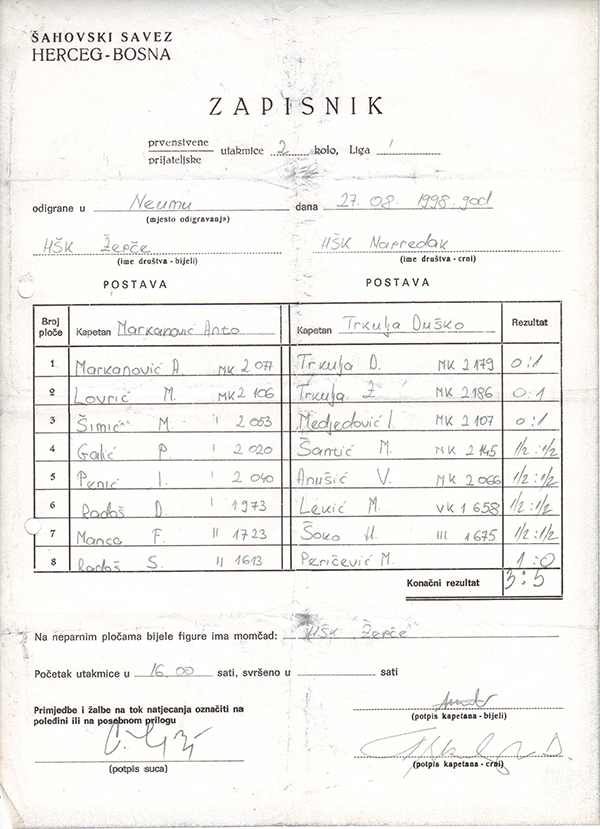 ŠAHOVSKI SAVEZ
HERCEG-BOSNA
ZAPISNIK
prvenstvene
prijateljske
utakmice 2 kolo, Liga 1
odigrane u Neumu dana 27. 08. 1998. god
(mjesto odigravanja)
HŠK Žepče HŠK Napredak
(ime društva - bijeli) (ime društva - crni)
POSTAVA POSTAVA
Broj ploče Kapetan Markanović Anto Kapetan Trkulja Duško Rezultat
1 Markanović A. MK 2077 Trkulja D. MK 2179 0:1
2 Lovrić M. MK 2106 Trkulja Ž. MK 2186 0:1
3 Šimić M. I 2053 Medjedović I. MK 2107 0:1
4 Galić P. I 2020 Šantić M. MK 2145 1/2:1/2
5 Perić I. I 2040 Anušić V. MK 2066 1/2:1/2
6 Radoš D. I 1973 Lekić M. VK 1658 1/2:1/2
7 F. II 1723 Šoko H. III 1675 1/2:1/2
8 Radoš S. II 1613 Peričević M. 1:0
Konačni rezultat 3:5
Na neparnim pločama bijele figure ima momčad: HŠK "Žepče"
Početak utakmice u 16.00 sati, svršeno u sati
Primjedbe i žalbe na tok natjecanja označiti na
poleđini ili na posebnom prilogu
(potpis kapetana - bijeli)
(potpis suca)
(potpis kapetana - crni)